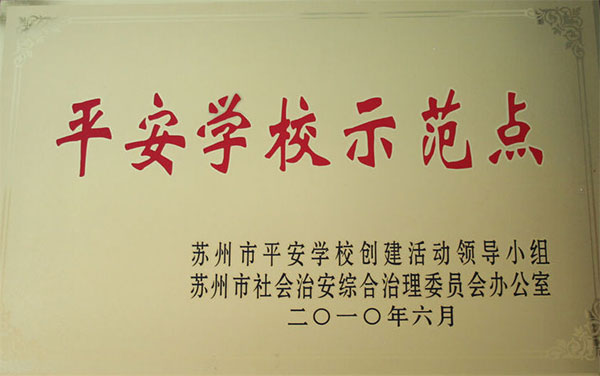 平安学校示范点
苏州市平安学校创建活动领导小组
苏州市社会治安综合治理委员会办公室
二〇一〇年六月